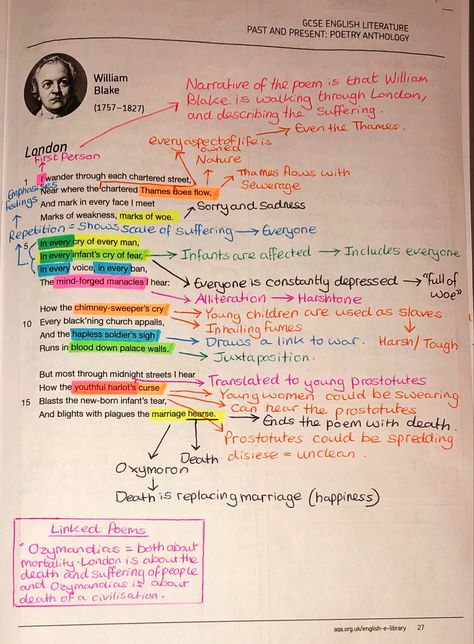 GCSE ENGLISH LITERATURE
PAST AND PRESENT: POETRY ANTHOLOGY
William
Blake
(1757–1827)
Narrative of the poem is that William
Blake is walking through London,
and describing the suffering.
Even the Thames.
every aspect of life is
owned
Nature
London
First Person
1
I wander through each chartered street,
Thames flows with
Sewerage
Emphasises
feelings
Near where the chartered Thames does flow,
And mark in every face I meet
Sorry and Sadness
Marks of weakness, marks of woe.
Repetition = Shows scale of suffering → Everyone
5
In every cry of every man,
In every infant's cry of fear,
Infants are affected → Includes everyone
In every voice, in every ban,
Everyone is constantly depressed → "full of
woe"
The mind-forged manacles I hear:
Alliteration → Harshtone
How the chimney-sweeper's cry
Young children are used as slaves
10 Every black'ning church appalls,
Inhailing fumes
And the hapless soldier's sigh
Draws a link to war.
Harsh/Tough
Runs in blood down palace walls.
Juxtaposition.
But most through midnight streets I hear
Translated to young prostotutes
How the youthful harlot's curse
Young women could be swearing
15 Blasts the new-born infant's tear,
Can hear the prostotutes
And blights with plagues the marriage hearse.
Ends the poem with death.
Prostotutes could be spredding
disiese = unclean.
Death
Oxymoron
Death is replacing marriage (happiness)
Linked Poems
• Ozymandias = both about
mortality. London is about the
death and suffering of people
and Ozymandias is about
death of a civilisation.
aqa.org.uk/english-e-library 27